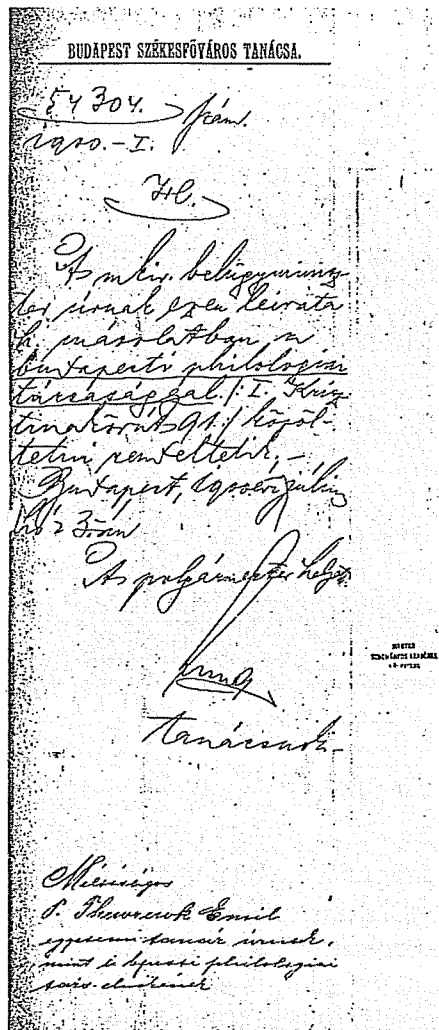 BUDAPEST SZÉKESFŐVÁROS TANÁCSA.
54304. szám.
1900. - I.
A m. kir. belügyminisz-
ter úrnak ezen leirata
h. másolatban a
budapesti philologiai
társasággal /: I. Krisz-
tina körút 91. :/ közöl-
tetni rendeltetik. -
Budapest, 1900 évi július
hó 23-án
A polgármester helyt.
tanácsnok
MAGYAR
TUDOMÁNYOS AKADÉMIA
KÖNYVTÁRA
Méltóságos
P. Thewrewk Emil
egyetemi tanár úrnak,
mint a bpesti philologiai
társ. elnökének